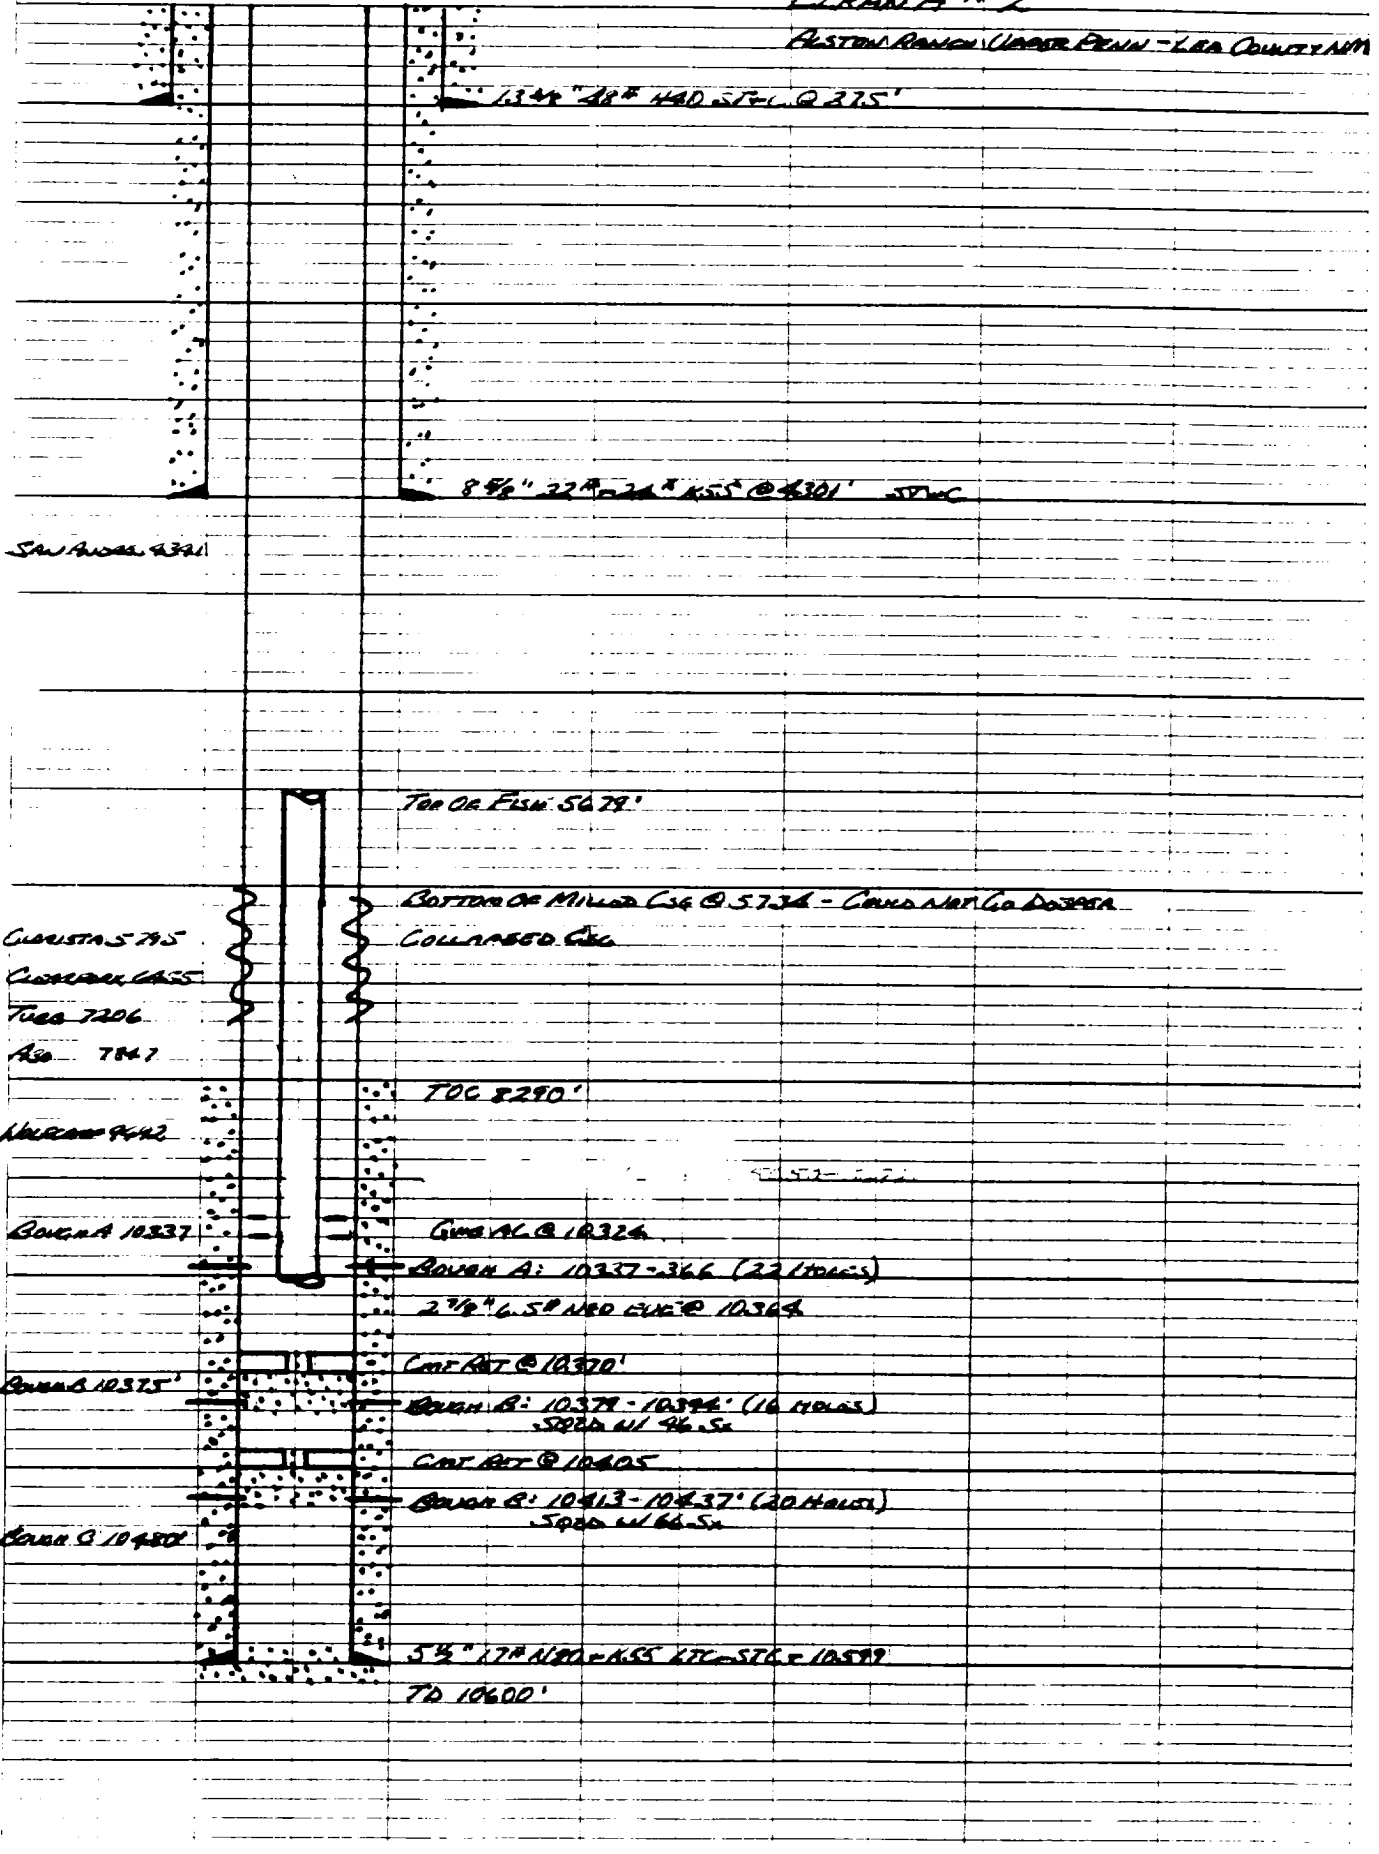 A #2
ALSTON RANCH UPPER PENN - LEA COUNTY NM
13 3/8" 48# H40 ST&C @ 375'
8 5/8" 32#-24# K55 @ 4301' ST&C
SAN ANDRES 4341
TOP OF FISH 5679'
BOTTOM OF MILLED CSG @ 5734 - COULD NOT GO DEEPER
GLORIETA 5795
COLLAPSED CSG
CLEARFORK 6455
TUBB 7206
ABO 7847
TOC 8290'
WOLFCAMP 9442
BOUGH A 10337
GUIB AC @ 10324
BOUGH A: 10337-366 (22 HOLES)
2 7/8" 6.5# N80 EUE @ 10364
CMT RET @ 10370'
BOUGH B 10375'
BOUGH B: 10379-10394' (16 HOLES)
SQZD W/ 46 SX
CMT RET @ 10405
BOUGH B: 10413-10437' (20 HOLES)
SQZD W/ 66 SX
BOUGH C 10480'
5 1/2" 17# N80 - K55 LTC-STC - 10599
TD 10600'